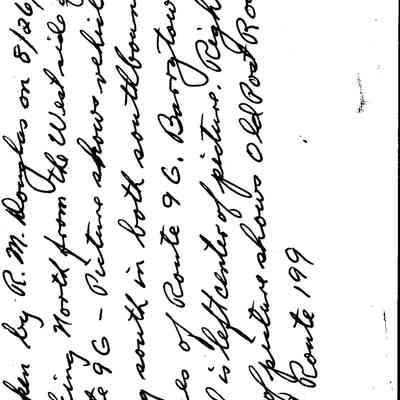 ken by R. M. Douglas on 8/26/
ing North from the West side
te 9G - Picture shows vehic
g south in both southboun
es of Route 9G. Barrytow
d is left center of picture. Righ
of picture shows Old Post Ro
d Route 199